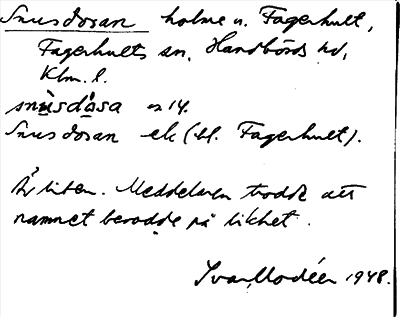 Snusdosan holme u. Fagerhult,
Fagerhults sn, Handbörds hd,
Klm. l.
snùsdåsa
Snusdosan ek (bl. Fagerhult).
Är liten. Meddelaren trodde att
namnet berodde på likhet.
Ivar Modéer 1948.